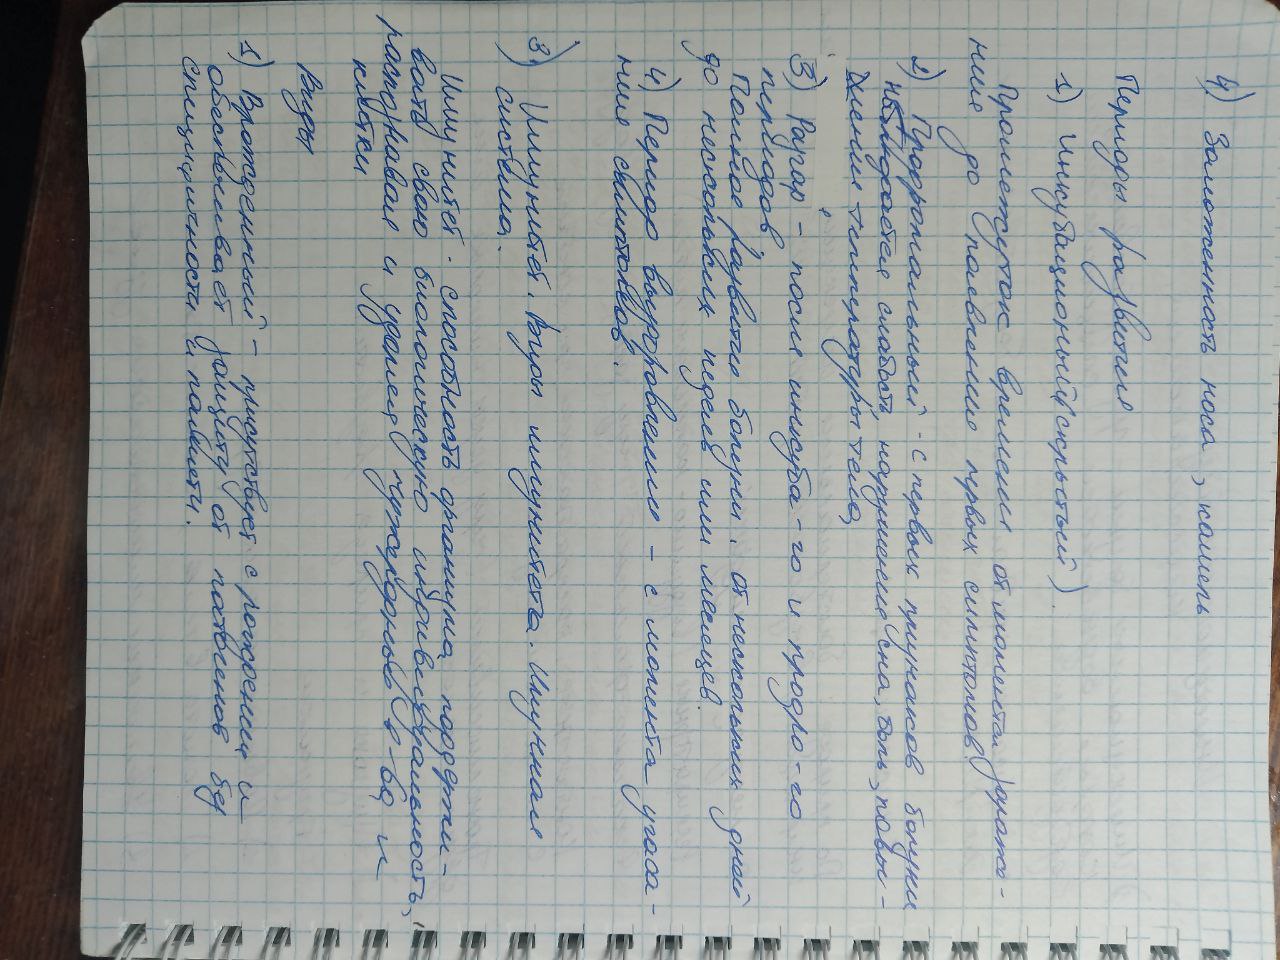 4) Заложенность носа, кашель
Периоды развития
1) инкубационный (скрытый).
Промежуток времени от момента зараже-
ние до появление первых симптомов.
2) Продромальный - с первых признаков болезни
наблюдается слабость, нарушение сна, боль, повы-
шении температуры тела,
3) Разгар - после инкуба-го и продро-го
периодов,
Полное развитие болезни. от нескольких дней
до нескольких недель или месяцев.
4) Период выздоровление - с момента угаса-
ние симптомов.
3) Иммунитет. Виды иммунитета. Имунная
система.
Иммунитет - способность организма поддержи-
вать свою биологическую индивидуальность,
распознавая и удаляя чужеродные в-ва и
клетки
Виды
1) Врожденный - присутствует с рождения и
обеспечивает защиту от патогенов без
специфичности и памяти.